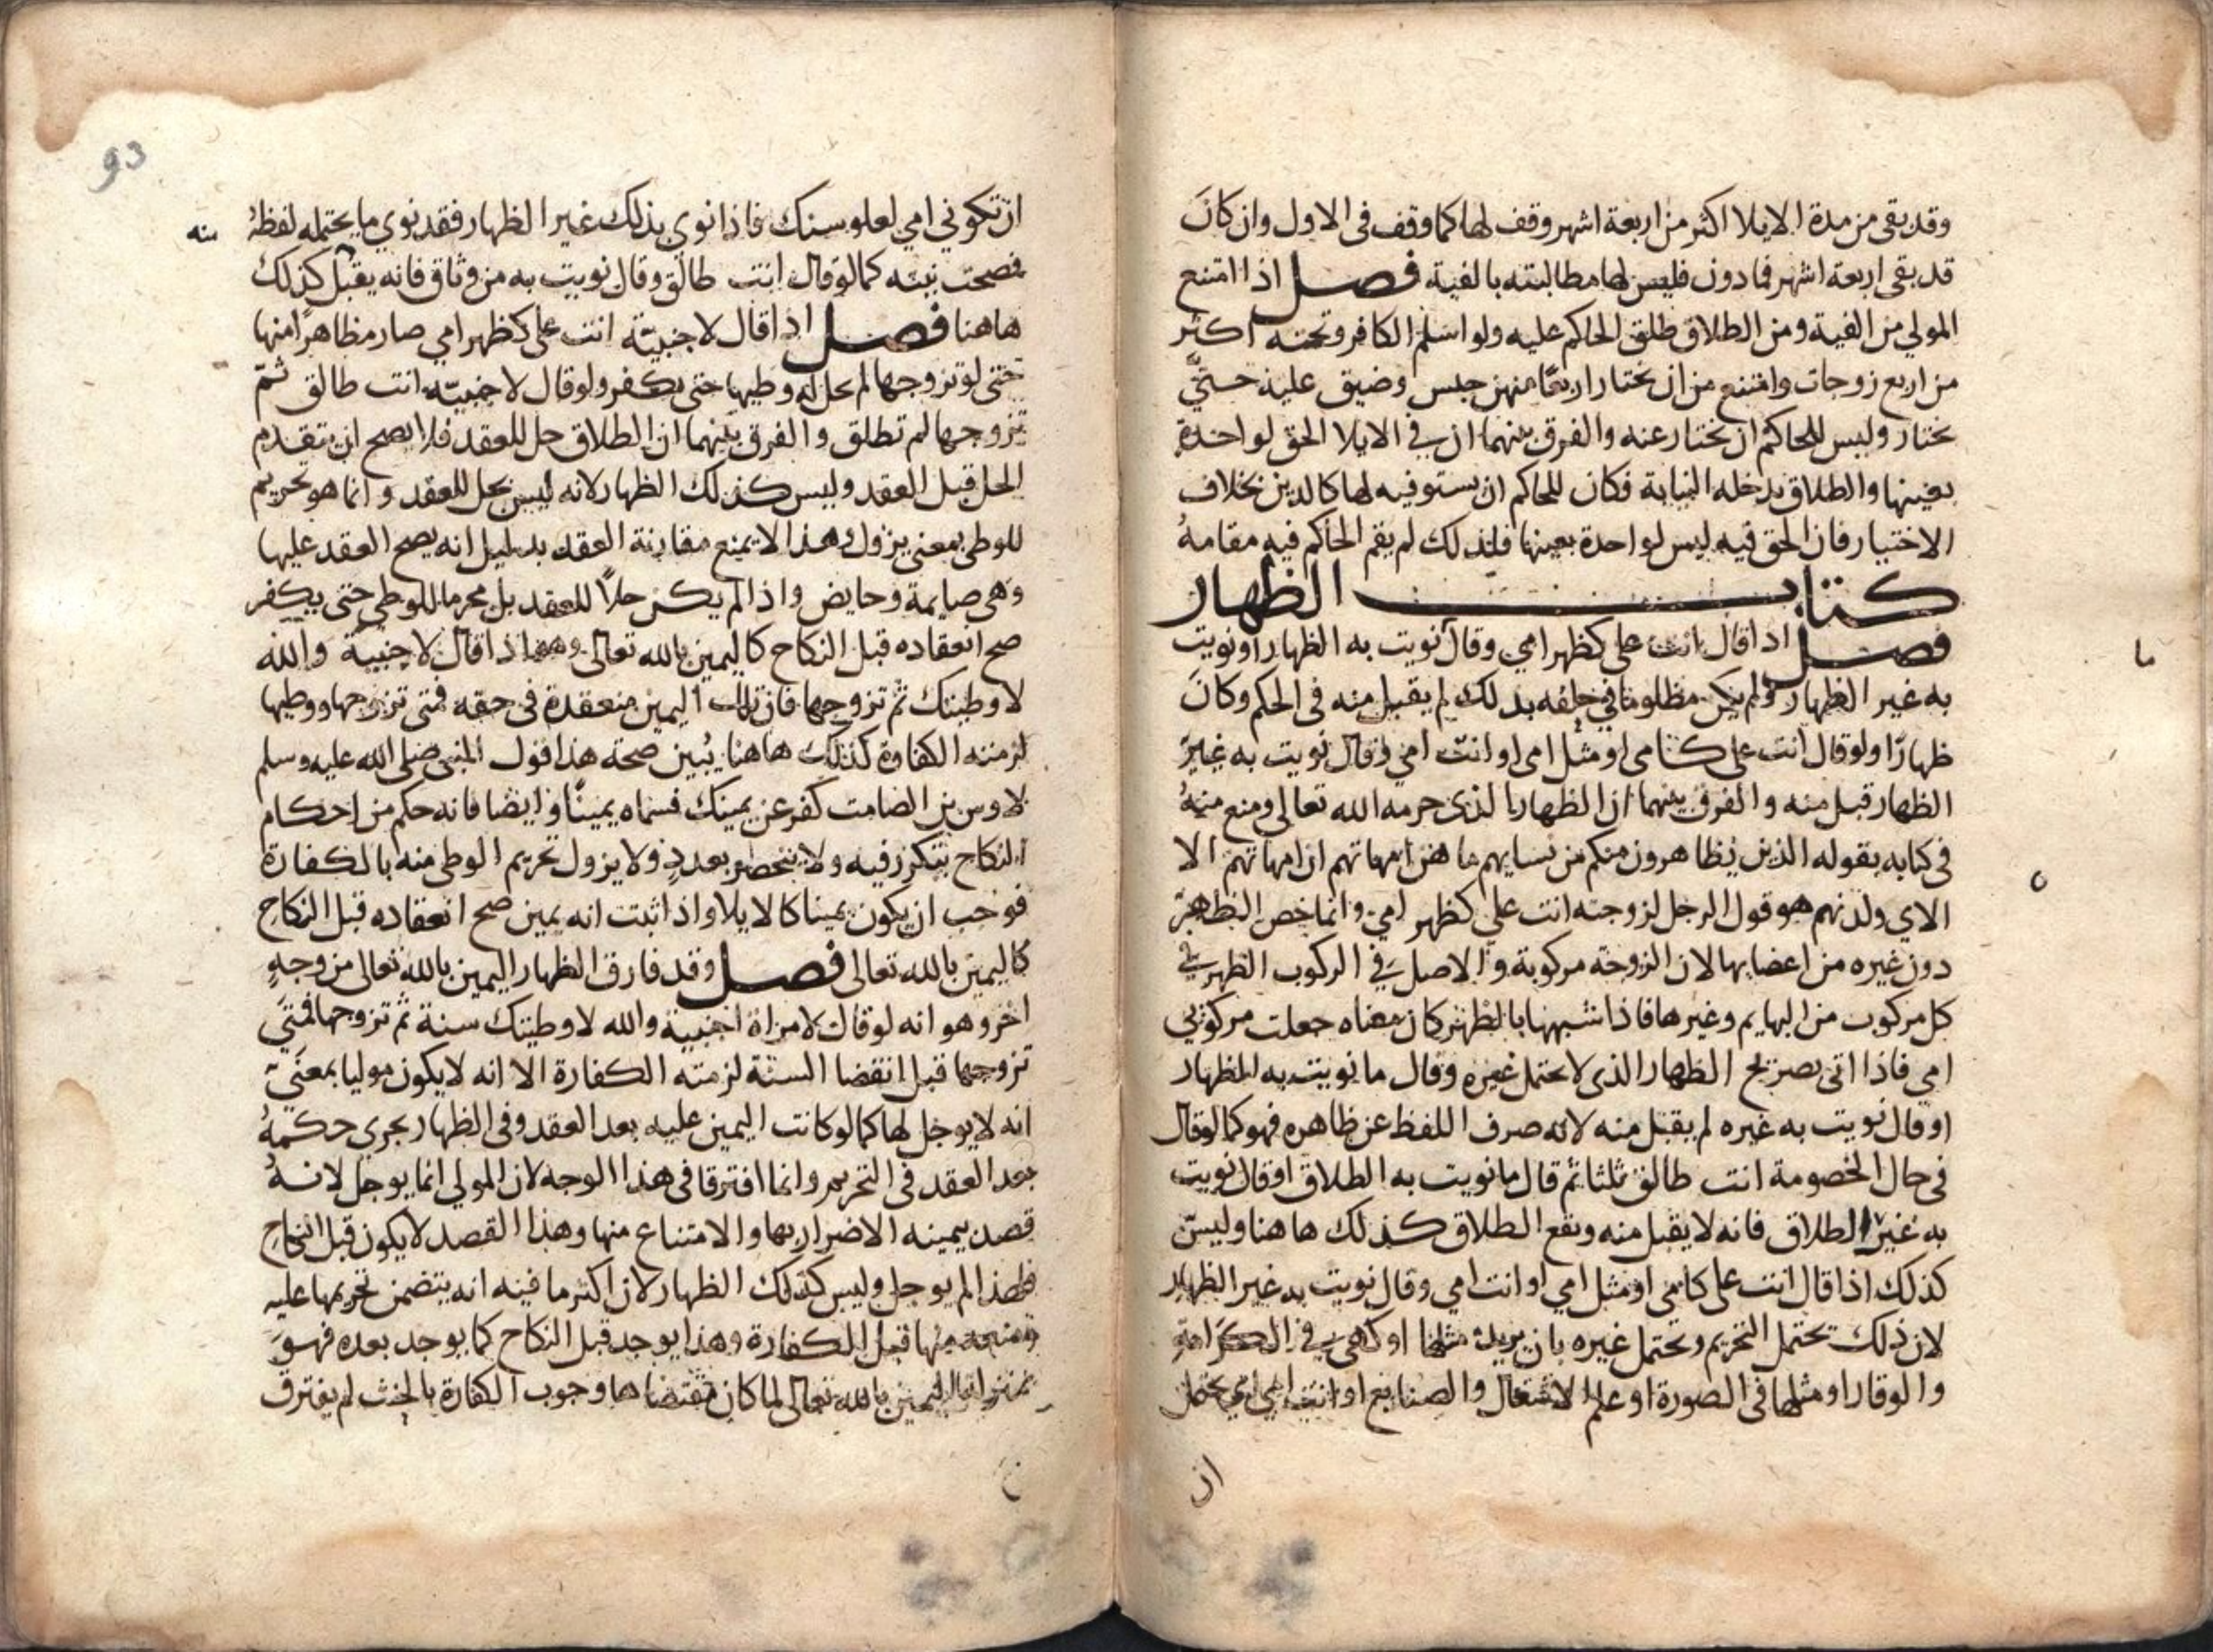 وقد بقى من مدة الايلا اكثر من اربعة اشهر وقف لها كما وقف فى الاول وان كان
قد بقى اربعة اشهر فما دون فليس لها مطالبته بالفية فصل اذا امتنع
المولي من الفية ومن الطلاق طلق الحاكم عليه ولو اسلم الكافر وتحته اكثر
من اربع زوجات وامتنع من ان يختار اربعًا منهن حبس وضيق عليه حتي
يختار وليس للحاكم ان يختار عنه والفرق بينهما ان في الايلا الحق لواحدة
بعينها والطلاق يدخله النيابة فكان للحاكم ان يستوفيه لها كالدين بخلاف
الاختيار فان الحق فيه ليس لواحدة بعينها فلذلك لم يقم الحاكم فيه مقامه
كتاب الظهار
فصل اذا قال انت على كظهر امي وقال نويت به الظهار او نويت
ما
به غير الظهار ولم يكن مظلوما في حلفه بذلك لم يقبل منه فى الحكم وكان
ظهارًا ولو قال انت على كامي او مثل امي او انت امي وقال نويت به غير
الظهار قبل منه والفرق بينهما ان الظهار الذى حرمه الله تعالى ومنع منه
فى كتابه بقوله الذين يظاهرون منكم من نسايهم ما هن امهاتهم ان امهاتهم الا
الاي ولدنهم هو قول الرجل لزوجته انت علي كظهر امي وانما خص الظهر
دون غيره من اعضايها لان الزوجة مركوبة والاصل في الركوب الظهر في
كل مركوب من البهايم وغيرها فاذا شبهها بالظهر كان معناه جعلت مركوبي
امي فاذا اتى بصريح الظهار الذى لا يحتمل غيره وقال ما نويت به الظهار
او قال نويت به غيره لم يقبل منه لانه صرف اللفظ عن ظاهره فهو كما لو قال
فى حال الخصومة انت طالق ثلثا ثم قال ما نويت به الطلاق او قال نويت
به غير الطلاق فانه لا يقبل منه ويقع الطلاق كذلك هاهنا وليس
كذلك اذا قال انت على كامي او مثل امي او انت امي وقال نويت به غير الظهار
لان ذلك يحتمل التحريم ويحتمل غيره بان يريد مثلها او كهي في الكرامة
والوقار او مثلها فى الصورة او علم الاشتغال والصنايع او انت امي اي يحتمل
ان
93
ان تكوني امي لعلو سنك فاذا نوى بذلك غير الظهار فقد نوي ما يحتمله لفظه
منه
فصحت نيته كما لو قال انت طالق وقال نويت به من وثاق فانه يقبل كذلك
هاهنا فصل اذا قال لاجنبيّة انت على كظهر امي صار مظاهرًا منها
حتى لو تزوجها لم يحل له وطيها حتى يكفر ولو قال لاجنبيّة انت طالق ثمّ
تزوجها لم تطلق والفرق بينهما ان الطلاق حل للعقد فلا يصح ان يتقدم
الحل قبل العقد وليس كذلك الظهار لانه ليس بحل للعقد وانما هو تحريم
للوطى بمعنى يزول وهذا لا يمنع مقارنة العقد بدليل انه يصح العقد عليها
وهي صايمة وحايض واذا لم يكن حلاً للعقد بل محرما للوطى حتى يكفر
صح انعقاده قبل النكاح كاليمين بالله تعالى وهو اذا قال لاجنبية والله
لا وطيتك ثم تزوجها فان تلك اليمين منعقدة فى حقه فمتى تزوجها ووطيها
لزمته الكفارة كذلك هاهنا يُبين صحة هذا قول النبي صلى الله عليه وسلم
لاوس بن الصامت كفر عن يمينك فسماه يمينًا وايضا فانه حكم من احكام
النكاح يتكرر فيه ولا ينحصر بعددٍ ولا يزول تحريم الوطى منه بالكفارة
فوجب ان يكون يمينا كالايلا واذا ثبت انه يمين صح انعقاده قبل النكاح
كاليمين بالله تعالى فصل وقد فارق الظهار اليمين بالله تعالى من وجهٍ
اخر وهو انه لو قال لامراة اجنبية والله لا وطيتك سنة ثم تزوجها فمتى
تزوجها قبل انقضا السنة لزمته الكفارة الا انه لا يكون موليا بمعنى
انه لا يوجل لها كما لو كانت اليمين عليه بعد العقد وفى الظهار يجرى حكمه
بعد العقد فى التحريم وانما افترقا فى هذا الوجه لان المولي انما يوجل لانه
قصد بيمينه الاضرار بها والامتناع منها وهذا القصد لا يكون قبل النكاح
فلهذا لم يوجل وليس كذلك الظهار لان اكثر ما فيه انه يتضمن تحريمها عليه
ومنعه منها قبل الكفارة وهذا يوجد قبل النكاح كما يوجد بعده فهو
اليمين بالله تعالى لما كان مقتضاها وجوب الكفارة بالحنث لم يفترق